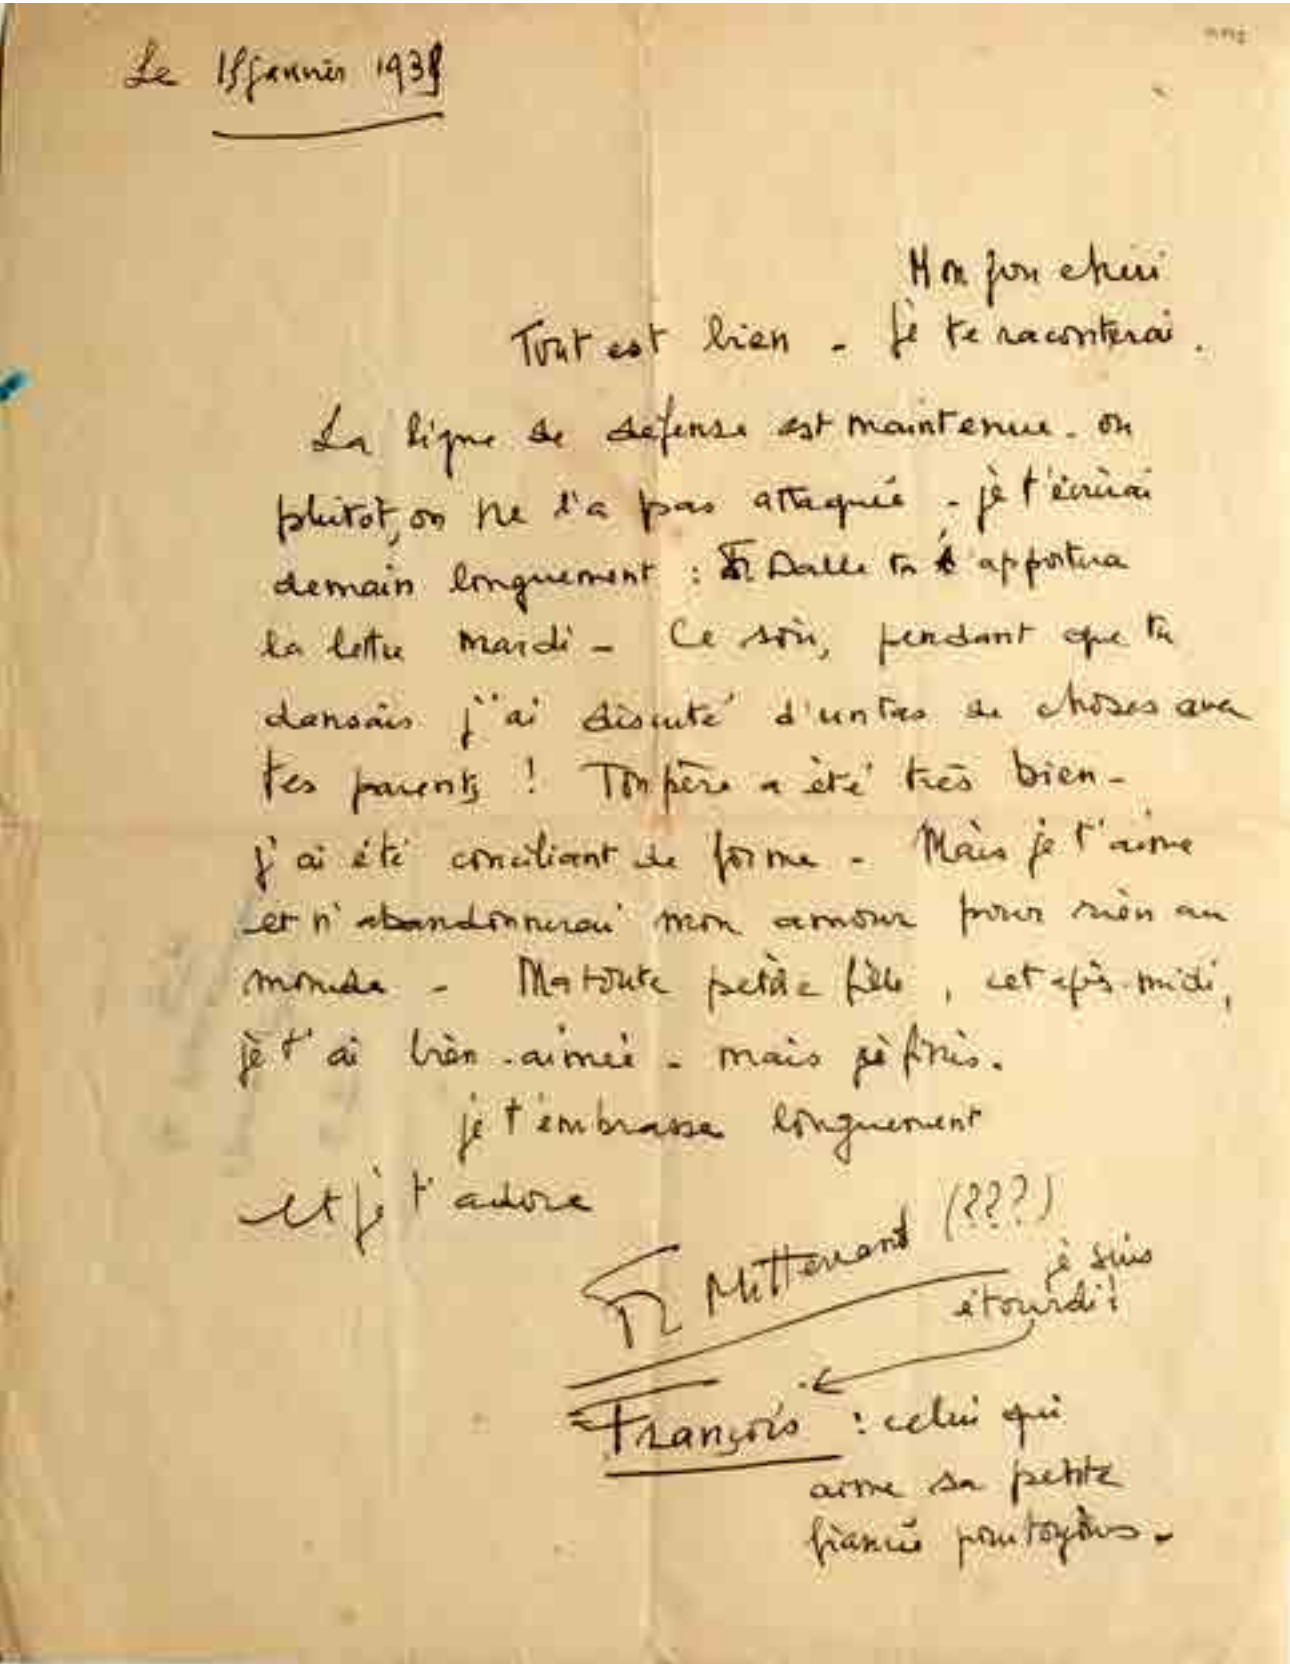 Le 15 janvier 1938
Mon zou chéri
Tout est bien - je te raconterai.
La ligne de défense est maintenue - ou
plutôt, on ne l'a pas attaquée - je t'écrirai
demain longuement : Dalle t'apportera
la lettre mardi - Ce soir, pendant que tu
dansais j'ai discuté d'un tas de choses avec
tes parents ! Ton père a été très bien -
j'ai été conciliant de forme - Mais je t'aime
et n'abandonnerai mon amour pour rien au
monde - Ma toute petite fille, cet après-midi,
je t'ai bien-aimée - mais je finis.
je t'embrasse longuement
et je t'adore
Fr Mitterrand (???)
je suis
étourdi !
François : celui qui
aime sa petite
fiancée pour toujours -